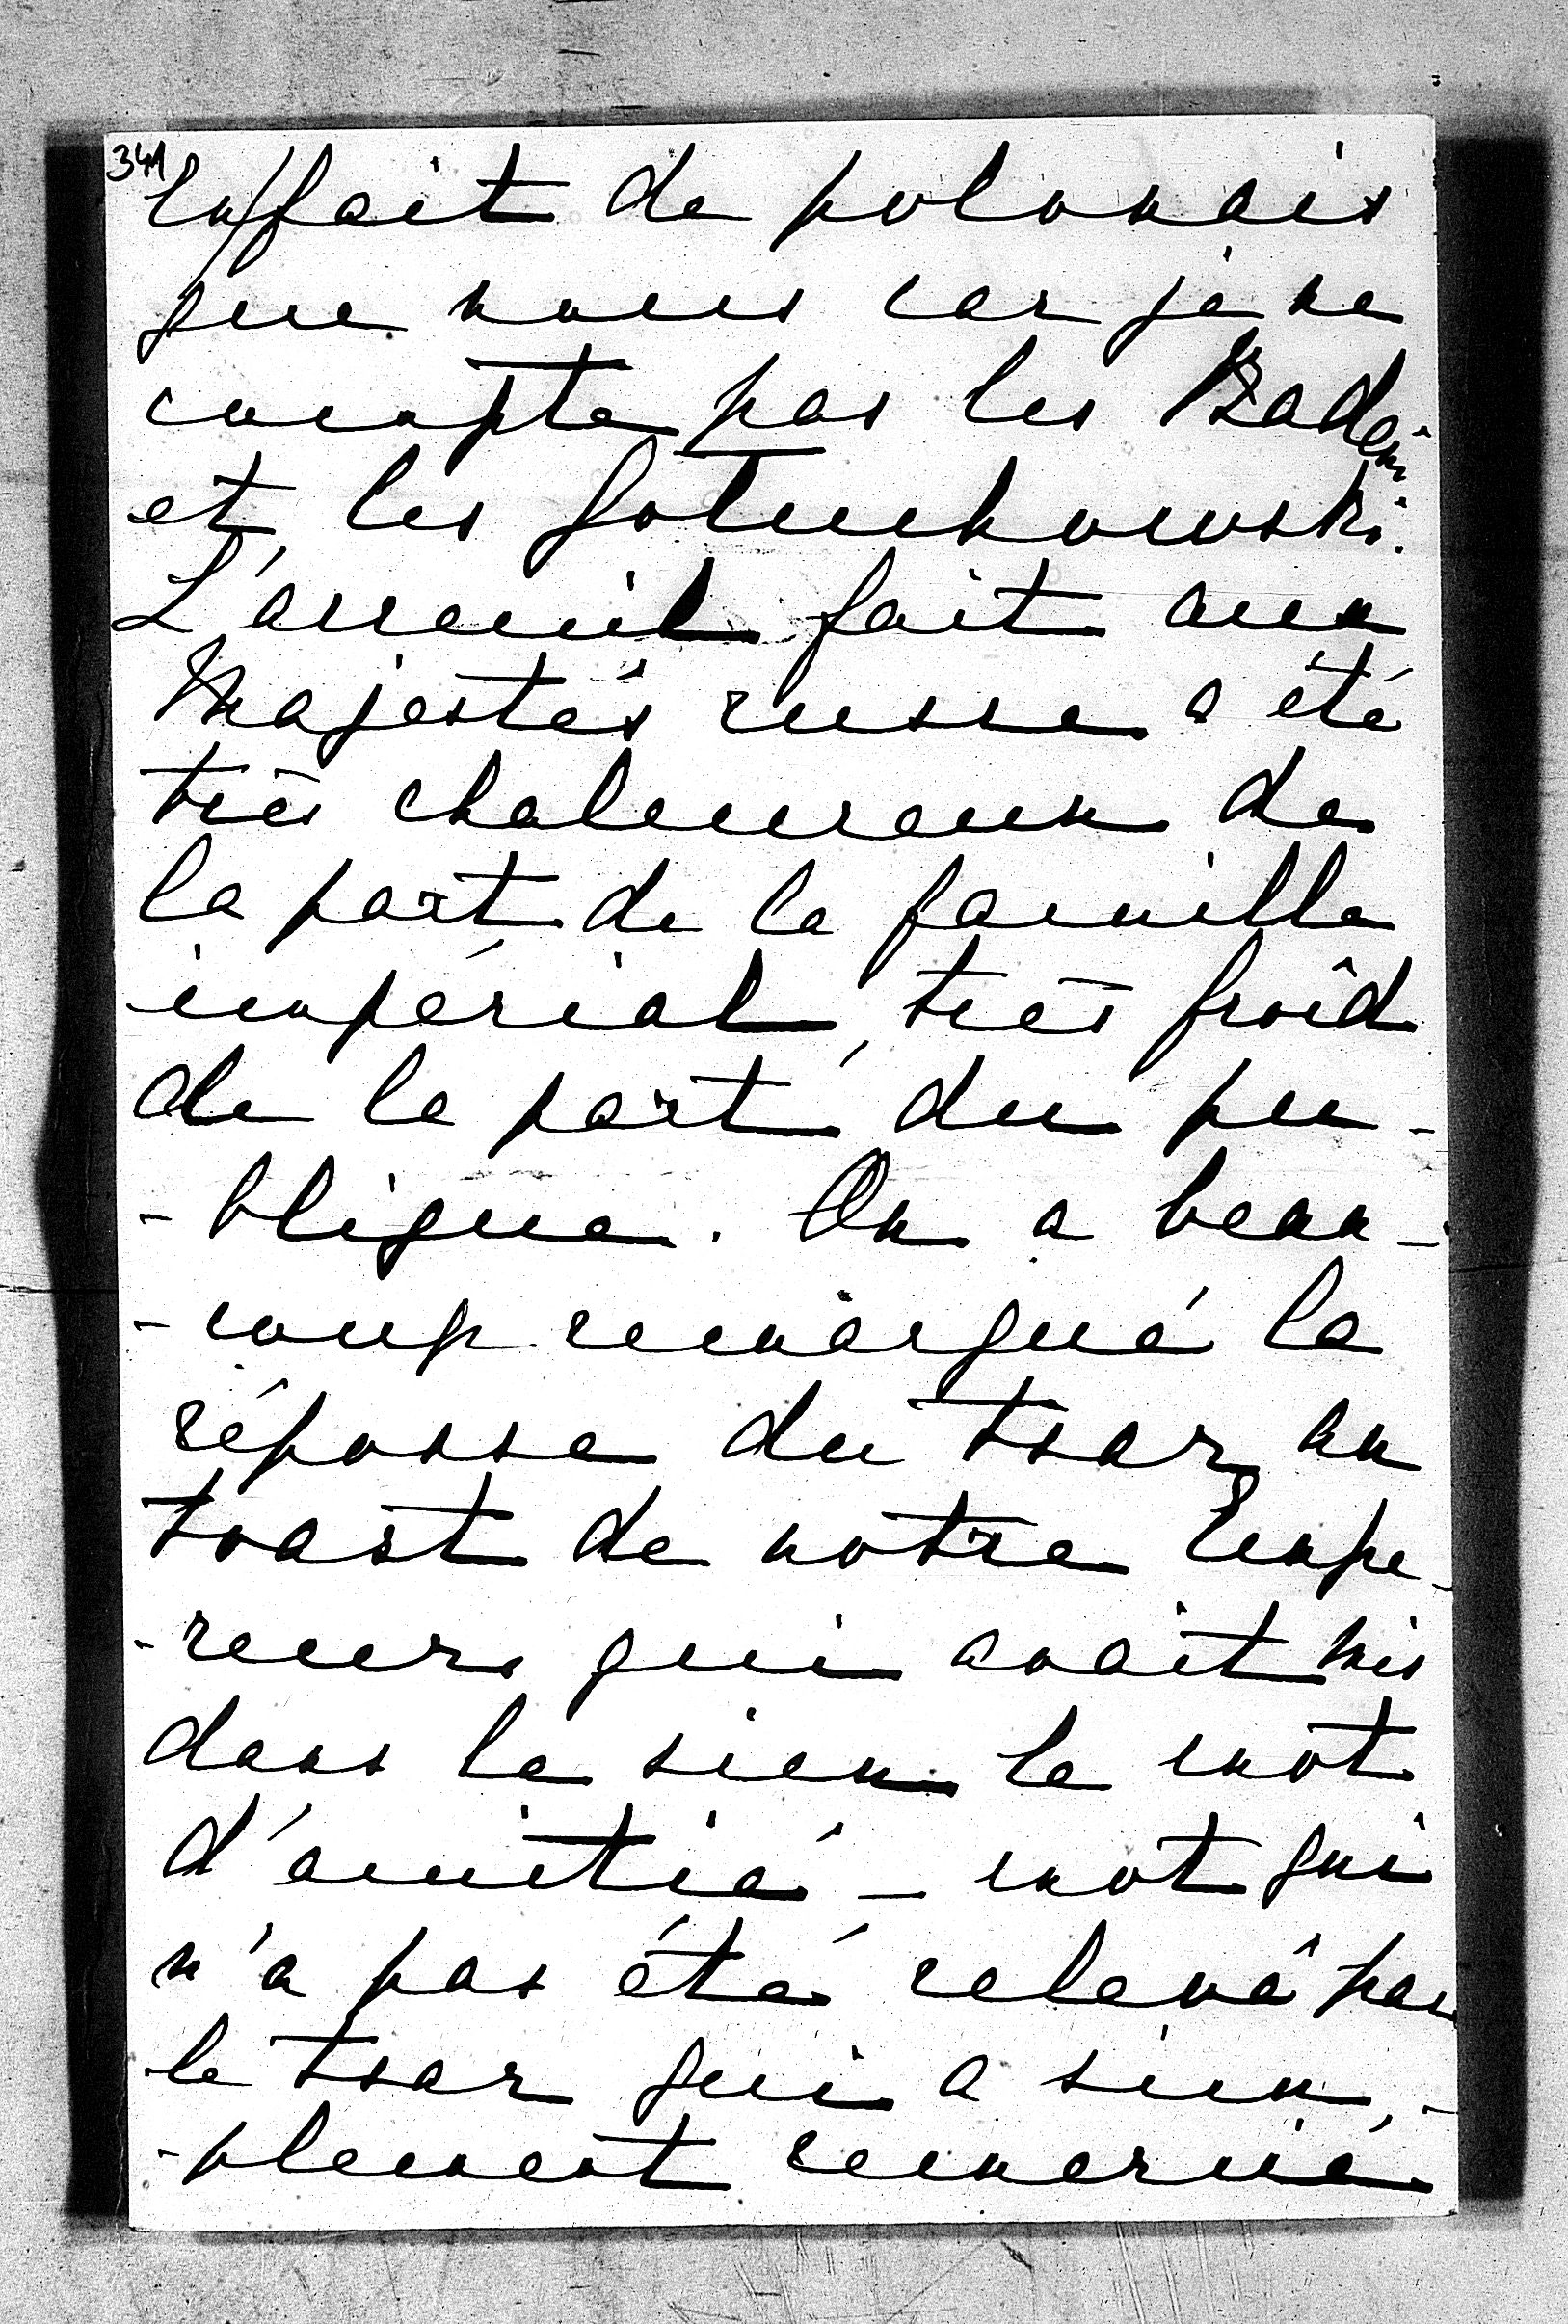 341
En fait de polonais
que nous car je ne
compte pas les Badeni
et les Gołuchowski.
L'acceuil fait aux
Majestés russe a été
très chaleureux de
la part de la famille
impérial, très froid
de la part du pu-
-blique. On a beau-
-coup remarqué la
réposse du tsar au
toast de notre Empe-
-reurs qui avait mis
dans le sien le mot
d'amitié - mot qui
n'a pas été relevé par
le tsar qui a sim-
-plement remercié